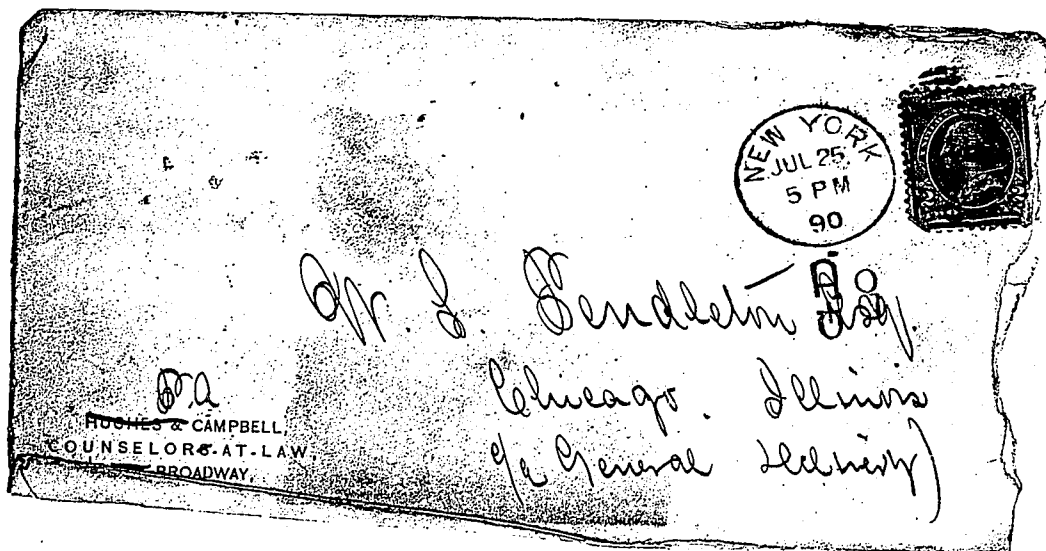 NEW YORK
JUL 25
5 PM
90
W. L. Pendleton Esq.
Chicago. Illinois
c/o General Delivery)
P. A
HUGHES & CAMPBELL,
COUNSELORS-AT-LAW
BROADWAY,